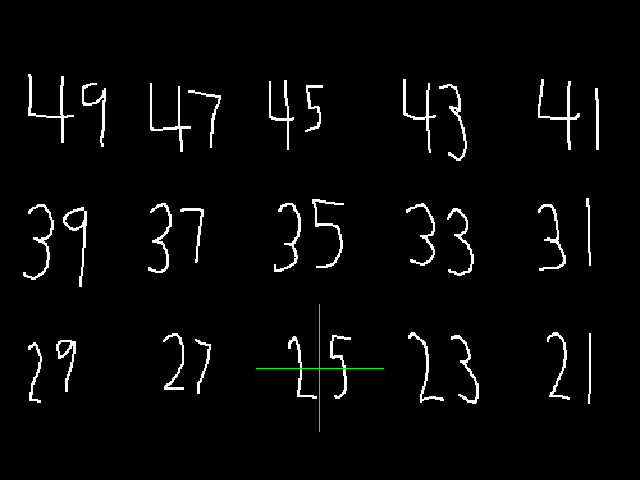 49 47 45 43 41
39 37 35 33 31
29 27 25 23 21